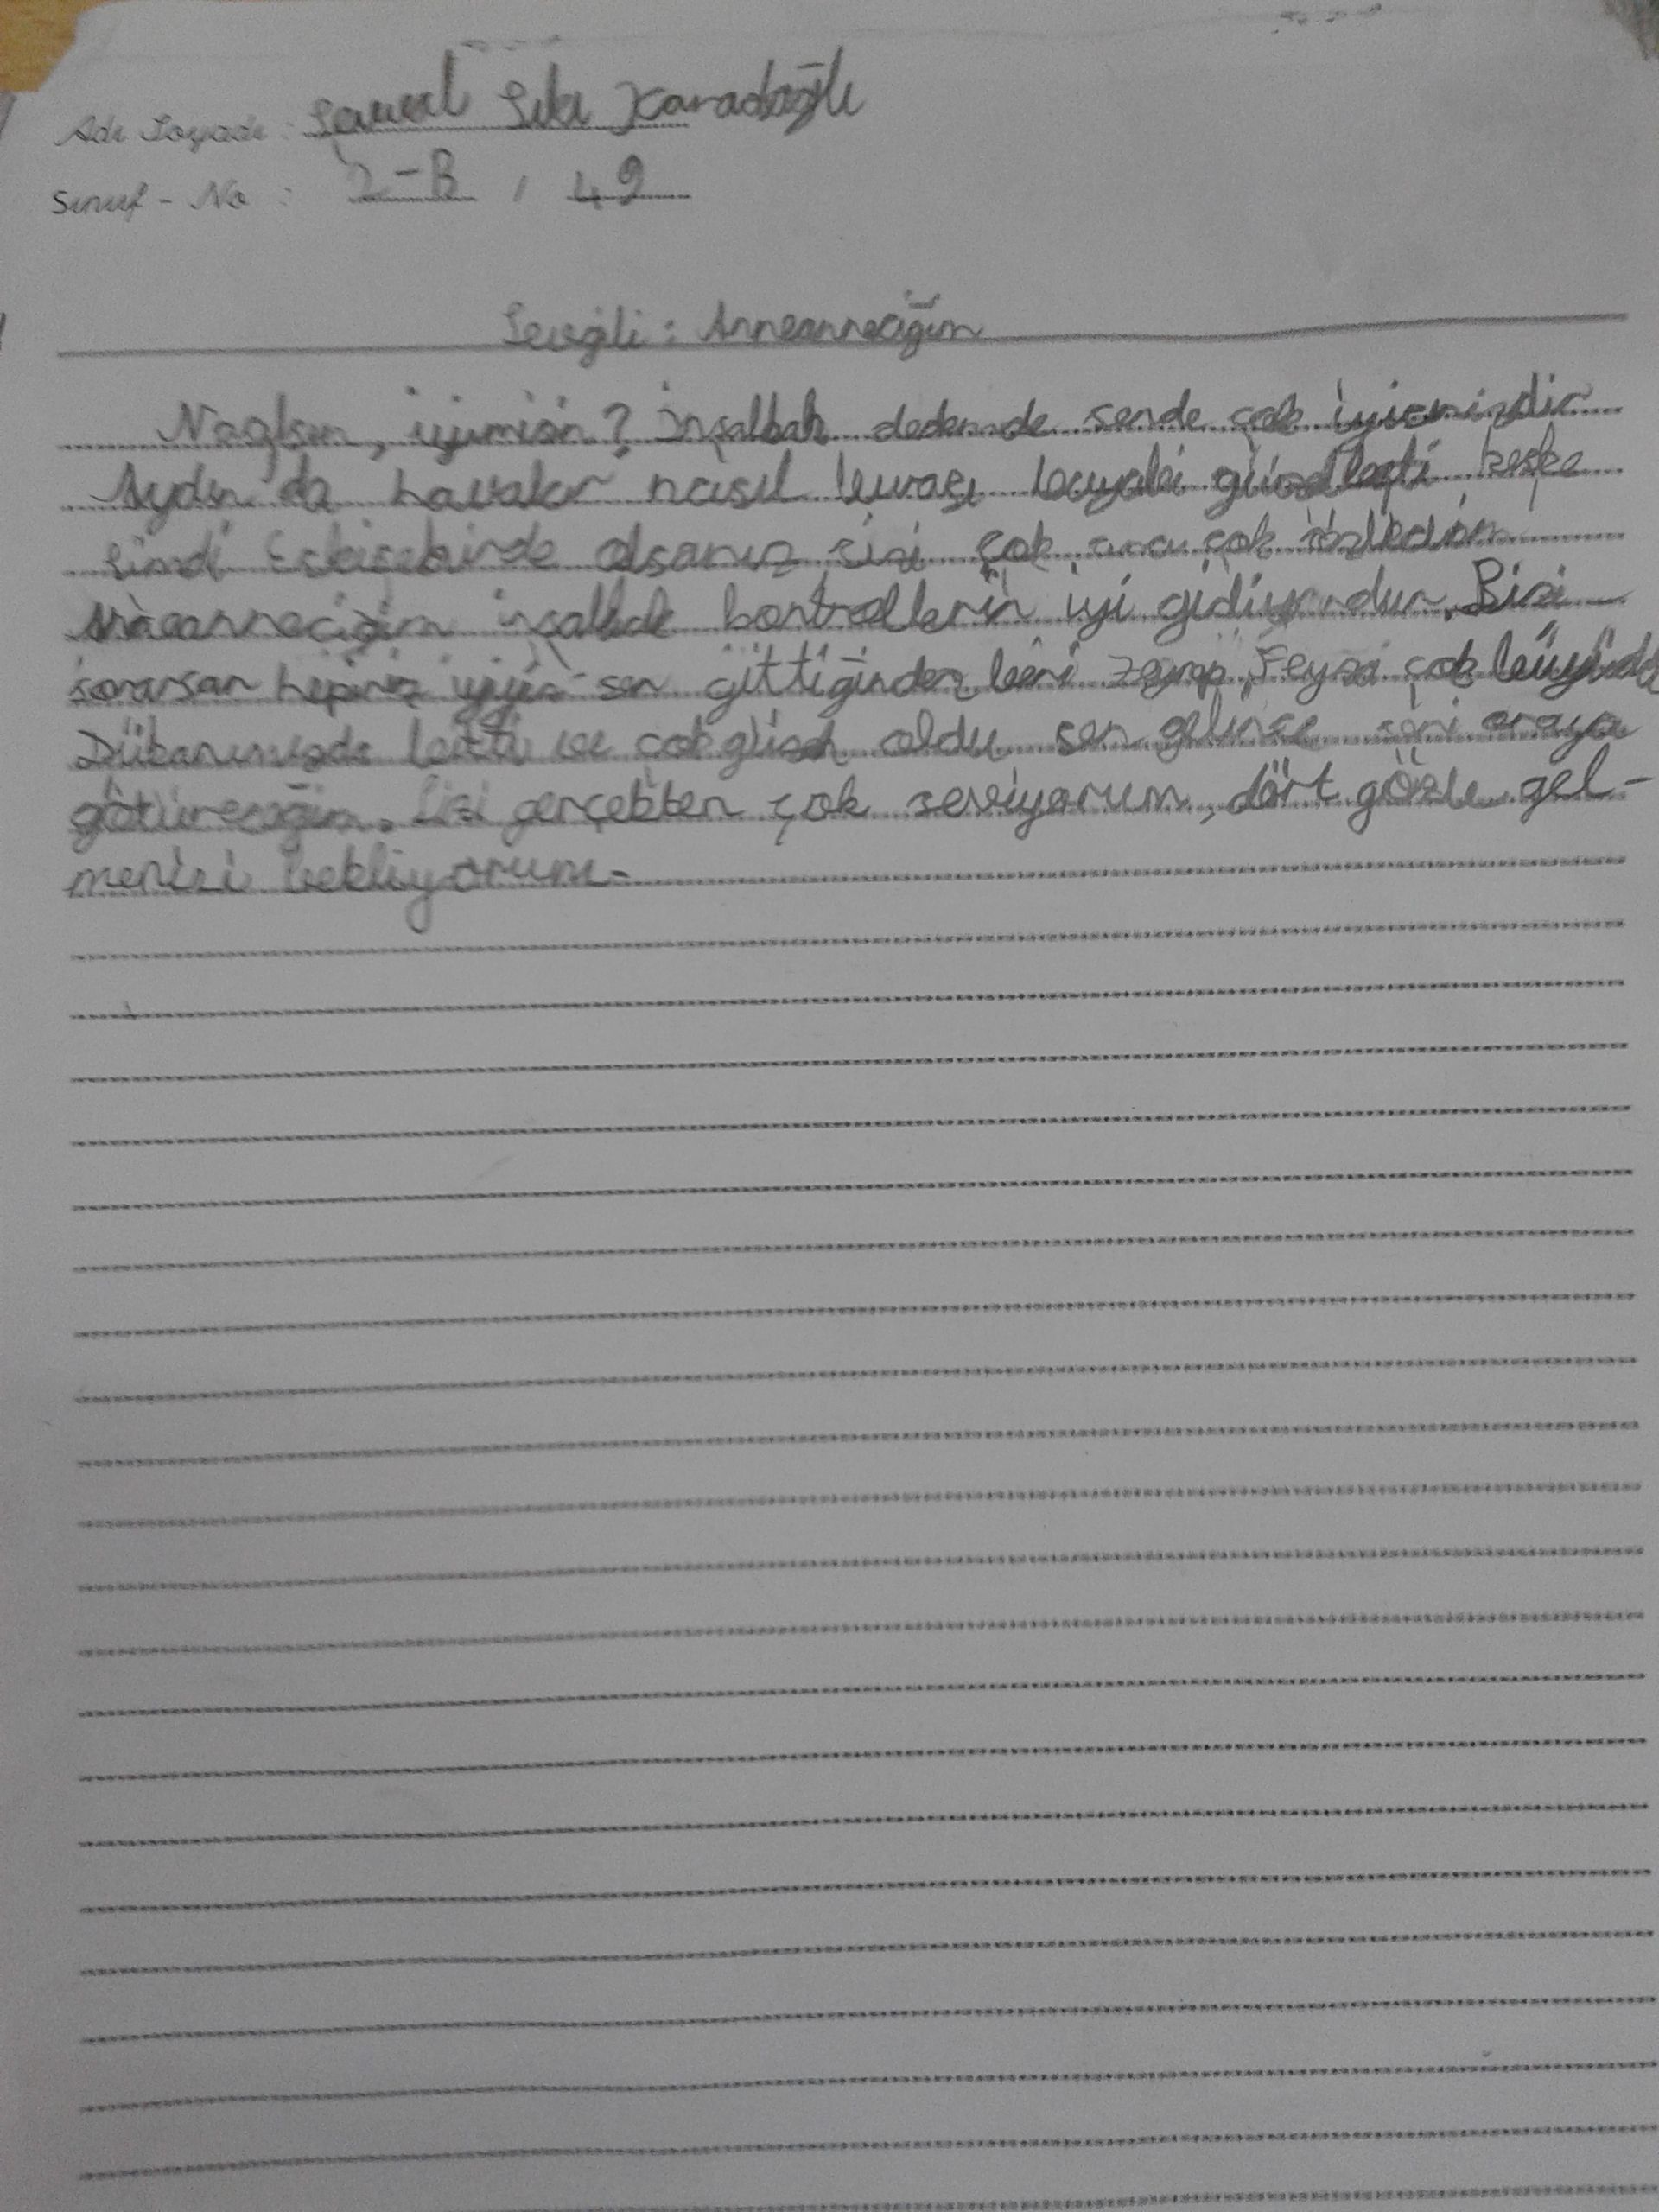 Adı Soyadı: Karadağlı
Sınıf - No : 2-B / 49
Sevgili: Anneanneciğim
Naslsın, iyimisin? İnşallah dedemde sende çok iyisinizdir
Aydın'da havalar nasıl burası bayabi güzelleşti keşke
şimdi Eskişehirde olsanız sizi çok ama çok özledim
Anneanneciğim inşallah kontrollerin iyi gidiyordur. Bizi
sorarsan hepimiz iyiyiz sen gittiğinden beri Zeynep Feyza çok büyüdü
Dükanımızda bitti ve çok güzel oldu sen gelince seni oraya
götüreceğim. Sizi gerçekten çok seviyorum, dört gözle gel-
menizi bekliyorum.